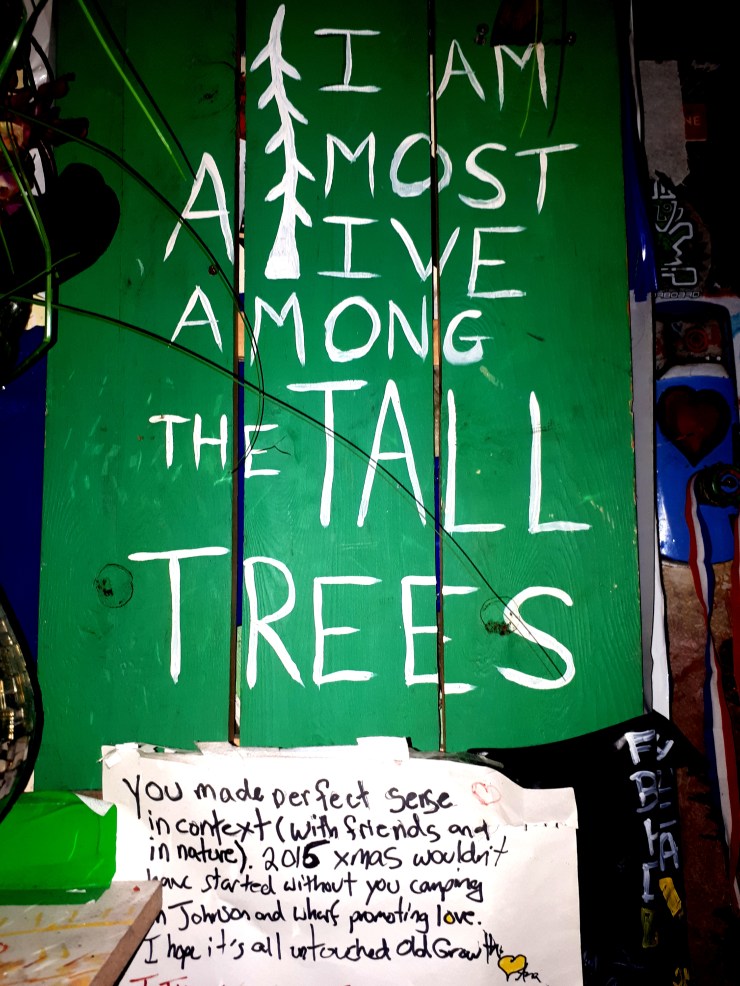 I AM
MOST
ALIVE
AMONG
THE TALL
TREES
You made perfect sense
in context (with friends and
in nature). 2015 xmas wouldn't
have started without you camping
on Johnson and wharf promoting love.
I hope it's all untouched Old Growth